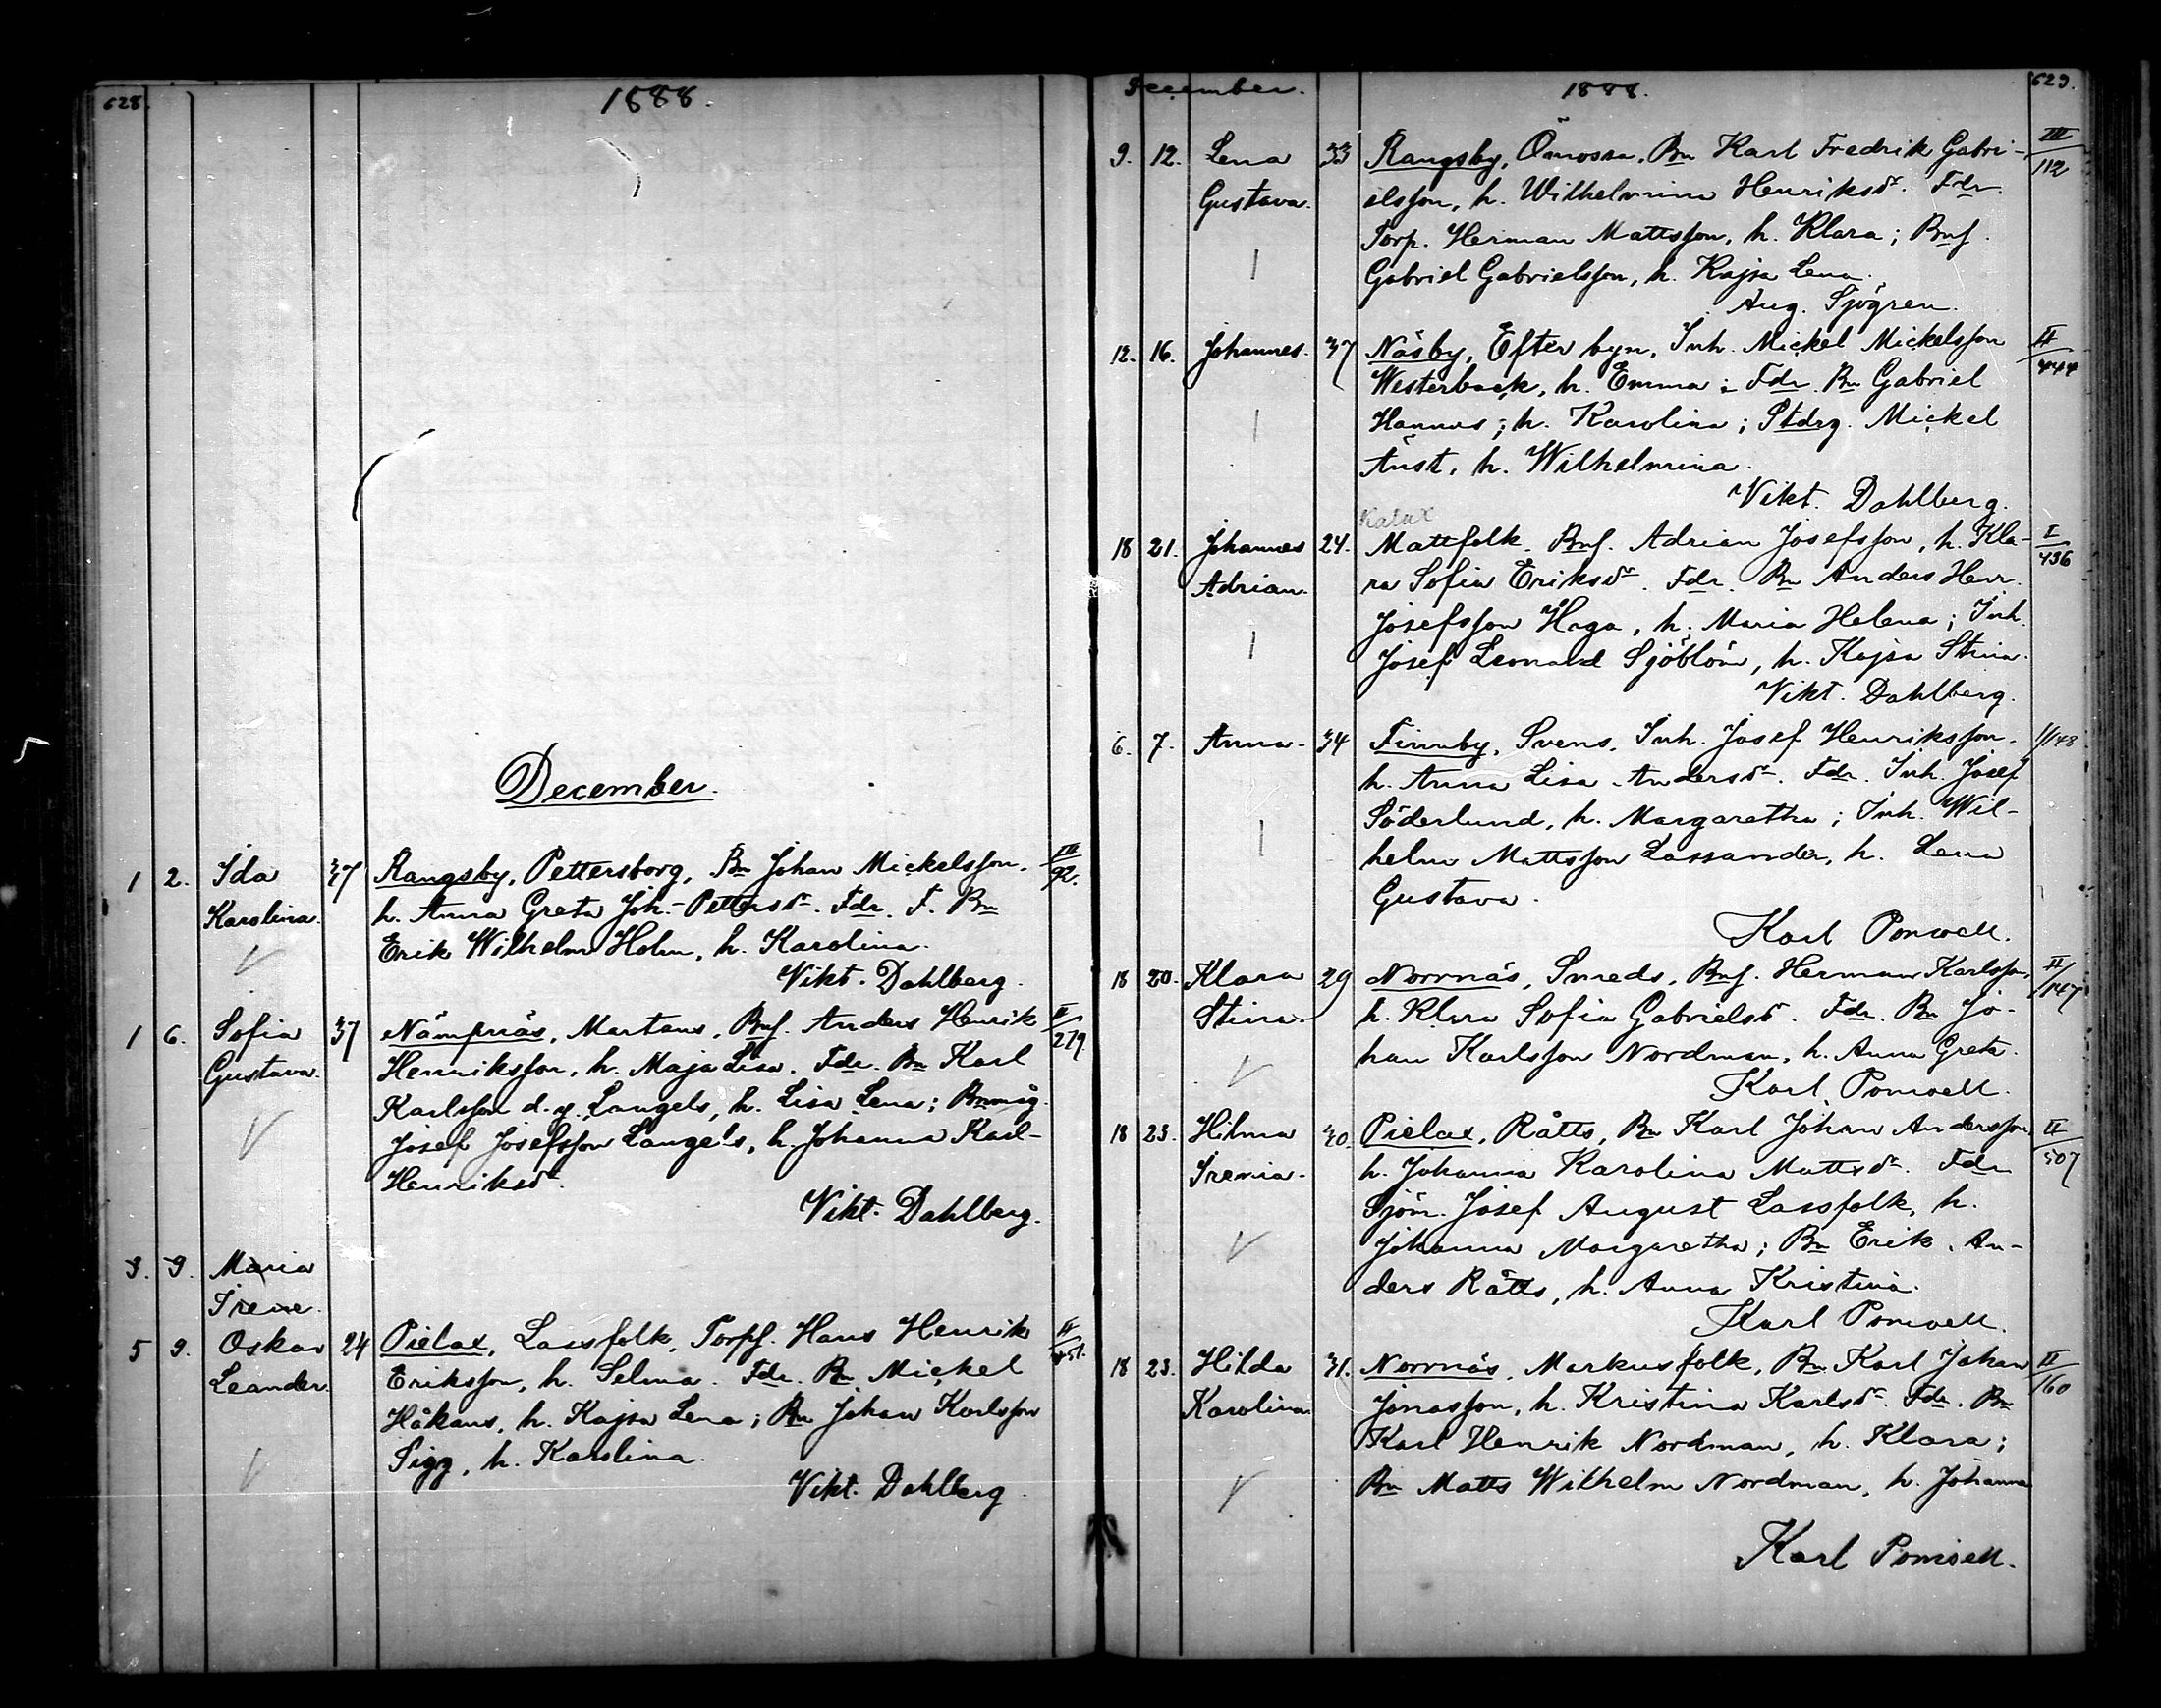 628. 1888.
December.
1 2. Ida 37 Rangsby, Pettersborg, Bn Johan Mickelsson, III/92.
Karolina. h. Anna Greta Joh.-Pettersdr. Fdr. F. Bn
Erik Wilhelm Holm, h. Karolina.
Vikt. Dahlberg.
1 6. Sofia 37 Nämpnäs, Martans, Bnf. Anders Henrik II/279
Gustava. Henriksson, h. Maja Lisa. Fdr. Bn Karl
Karlsson d.y. Langels, h. Lisa Lena; Bnmåg.
Josef Josefsson Langels, h. Johanna Karl-
Henriksdr.
Vikt. Dahlberg.
3. 9. Maria
Irene.
5 9. Oskar 24 Pielax, Lassfolk, Torpf. Hans Henrik II/451.
Leander. Eriksson, h. Selma. Fdr. Bn Mickel
Håkans, h. Kajsa Lena; Bn Johan Karlsson
Sigg, h. Karolina.
Vikt. Dahlberg.
December. 1888. 629.
9. 12. Lena 33 Rangsby, Ömossa, Bn Karl Fredrik Gabri- III/112
Gustava. elsson, h. Wilhelmina Henriksdr. Fdr.
Torp. Herman Mattsson, h. Klara; Bnf.
Gabriel Gabrielsson, h. Kajsa Lena.
Aug. Sjögren.
12. 16. Johannes. 37 Näsby, Efter byn, Inh. Mickel Mickelsson II/444
Westerback, h. Emma; Fdr. Bn Gabriel
Hannus; h. Karolina; Stdrg. Mickel
Änst, h. Wilhelmina.
Vikt. Dahlberg.
Kalax
18 21. Johannes 24. Mattfolk. Bnf. Adrian Josefsson, h. Kla- I/436
Adrian. ra Sofia Eriksdr. Fdr. Bn Anders Henr.
Josefsson Haga, h. Maria Helena; Inh.
Josef Leonard Sjöblom, h. Kajsa Stina.
Vikt. Dahlberg.
6. 7. Anna. 34 Finnby, Svens, Inh. Josef Henriksson, 1/148
h. Anna Lisa Andersdr. Fdr. Inh. Josef
Söderlund, h. Margaretha; Inh. Wil-
helm Mattsson Lassander, h. Lena
Gustava.
Karl Ponsoell.
18 20. Klara 29 Norrnäs, Smeds, Bnf. Herman Karlsson, II/147
Stina. h. Klara Sofia Gabrielsdr. Fdr. Bn Jo-
han Karlsson Nordman, h. Anna Greta.
Karl Ponsoell.
18 23. Hilma 40. Pielax, Råtts, Bn Karl Johan Andersson, II/507
Irenia. h. Johanna Karolina Mattsdr. Fdr
Sjöm. Josef August Lassfolk, h.
Johanna Margaretha; Bn Erik An-
ders Råtts, h. Anna Kristina.
Karl Ponsoell.
18 23. Hilda 31. Norrnäs, Markusfolk, Bn. Karl Johan II/160
Karolina. Jonasson, h. Kristina Karlsdr. Fdr. Bn
Karl Henrik Nordman, h. Klara;
Bn Matts Wilhelm Nordman, h. Johanna
Karl Ponsoell.